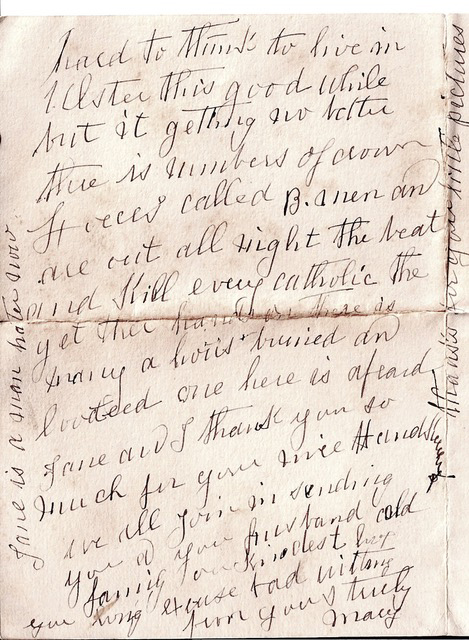 hard to think to live in
Ulster this good while
but it getting no better
thre is numbers of crown
forces called B. men an
are out all night the beat
and Kill every catholic the
get ther hands on there is
many a hous burned an
looteed one here is afeard
Jane and I thank you so
much for your nice Handk
we all join in sending
you & you husband and
family our kindest
you wing excuse bad writting
from yours truly
Mary
Jane is a man hater now
thanks for your little pictures